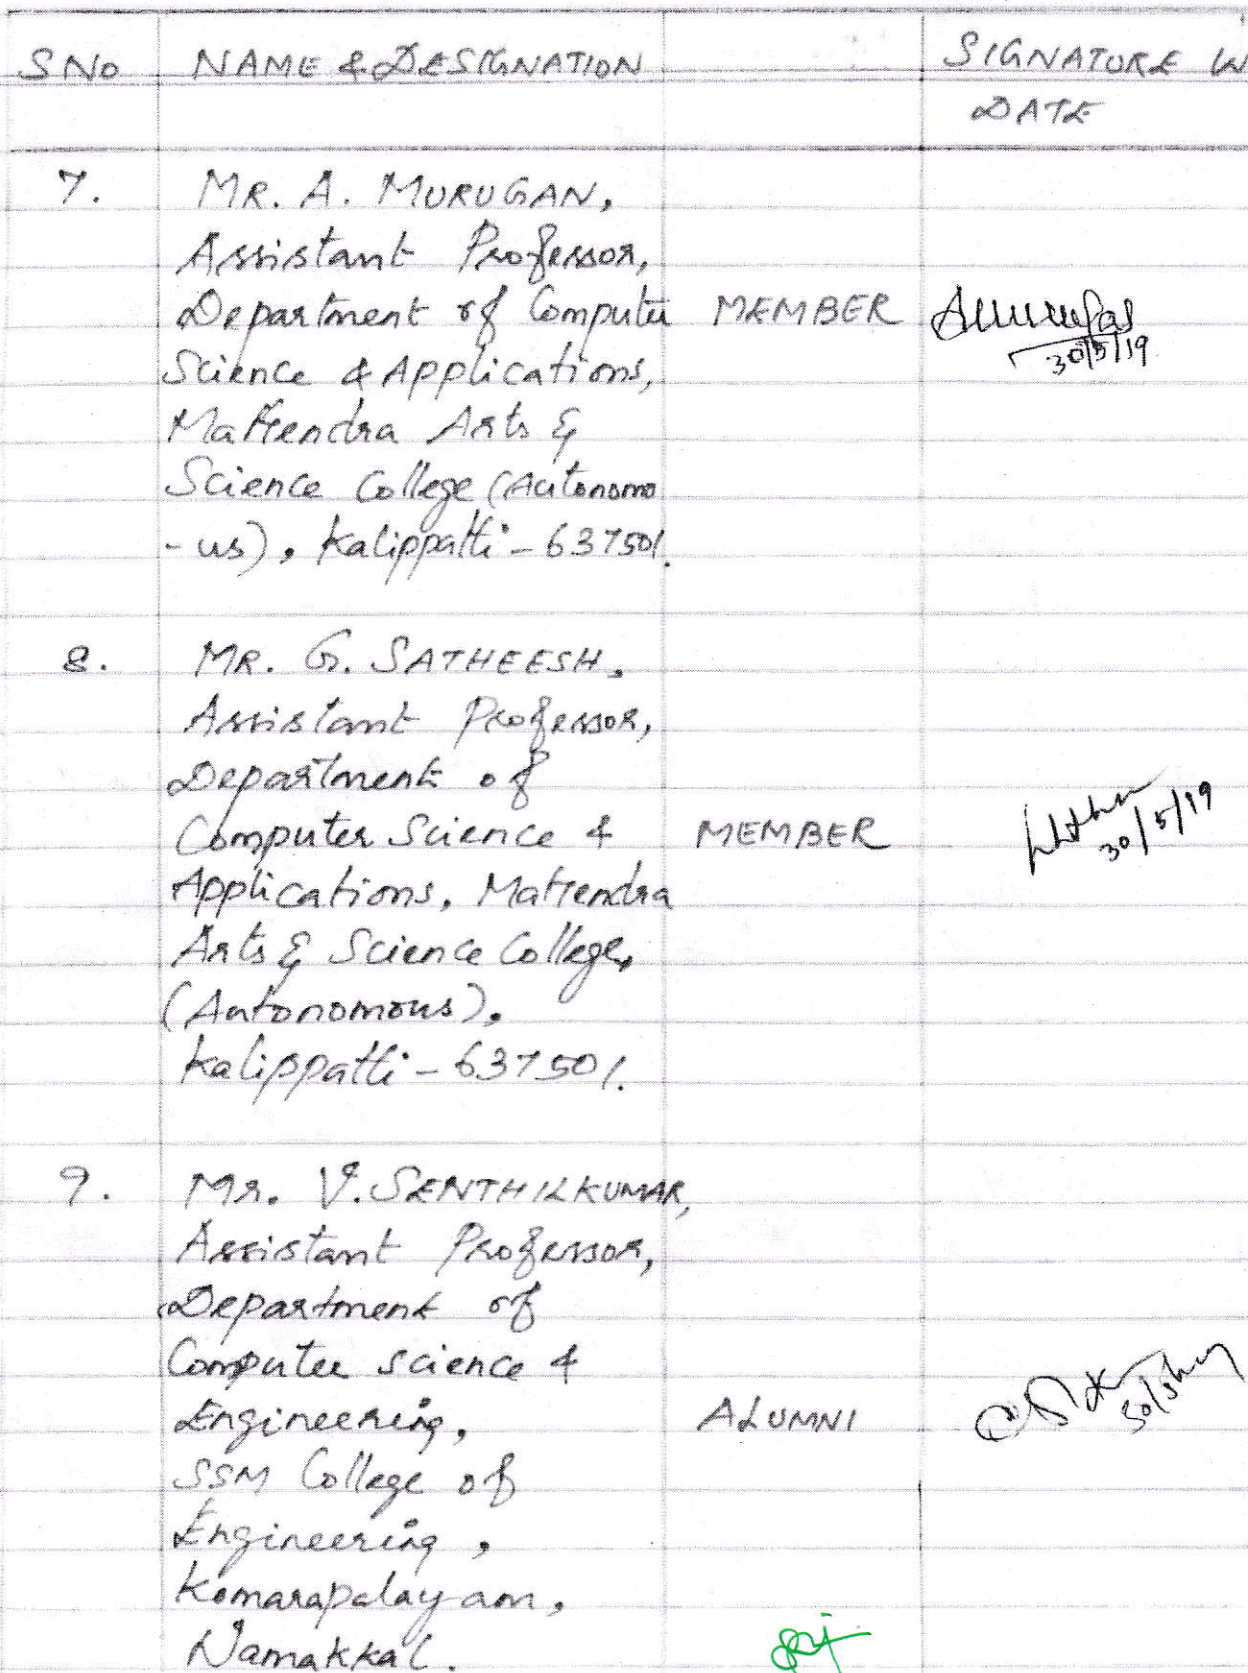 S NO NAME & DESIGNATION SIGNATURE W
DATE
7. MR. A. MURUGAN,
Assistant Professor,
Department of Computer MEMBER
Science & Applications, 30/5/19
Mahendra Arts &
Science College (Autonomo
-us), Kalippatti - 637501.
8. MR. G. SATHEESH,
Assistant Professor,
Department of
Computer Science & MEMBER 30/5/19
Applications, Mahendra
Arts & Science College,
(Autonomous),
Kalippatti - 637501.
9. Mr. V. SENTHILKUMAR,
Assistant Professor,
Department of
Computer science &
Engineering, ALUMNI
SSM College of
Engineering,
Komarapalayam,
Namakkal.